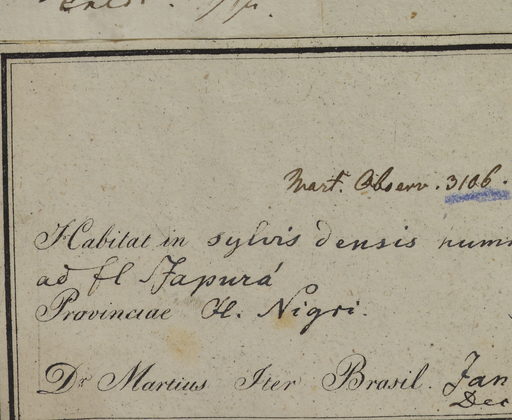 Mart. Observ. 3106.
Habitat in sylvis densis
ad fl Japurá
Provinciae fl. Nigri.
Dr Martius Iter Brasil. Jan
Dec